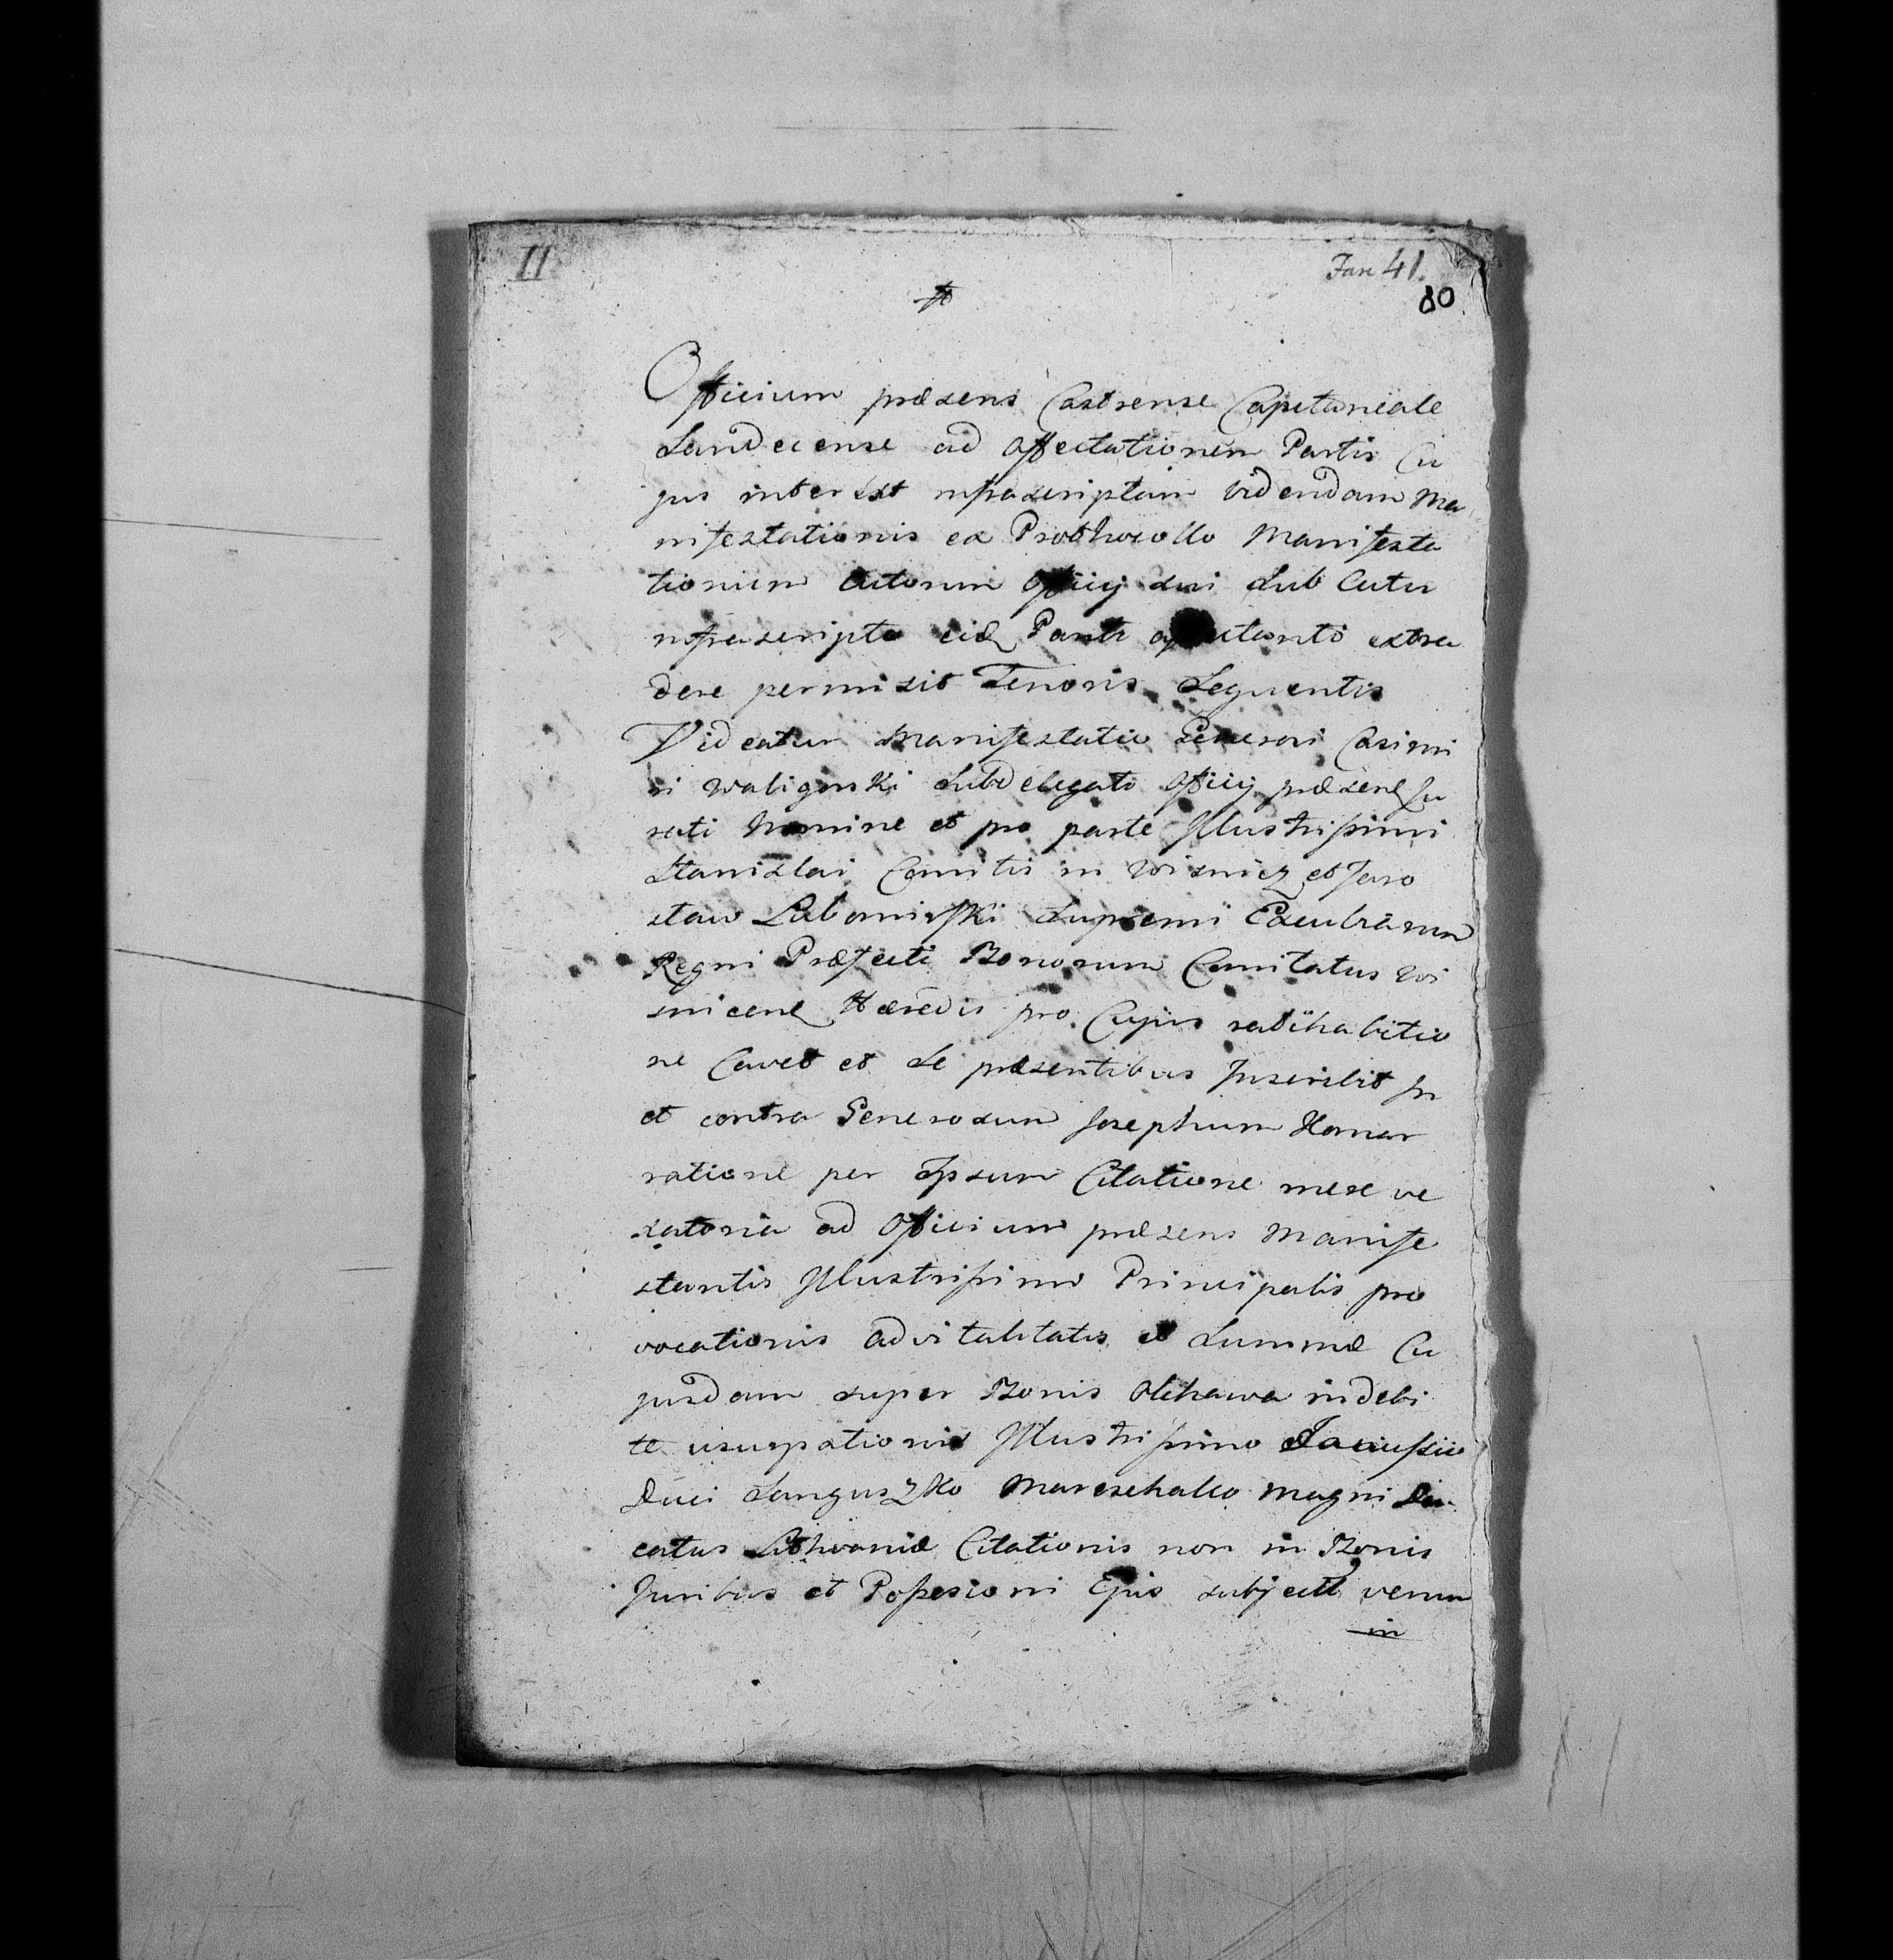 II
Fasc 41.
80
Officium præsens Castrense Capitaneale
Sandecense ad affectationem Partis Cu
jus interest infrascriptam videndam Ma
nifestationis ex Prothocollo Manifesta
tionum Actorum Officij sui sub Actu
infrascripto eidq Parti affectanti extra
dere permisit Tenoris Sequentis
Videatur Manifestatio Generosi Casimi
ri Waligorski Subdelegati Officij præsenq Ju
rati Nomine et pro parte Illustrissimi
Stanislai Comitis in Wisnicz et Jaro
slaw Lubomirski Supremi Excubiarum
Regni Præfecti Bonorum Comitatus Wi
snicenq Hæredis pro Cujus ratihabitio
ne Cavet et Se præsentibus Inscribit In
et contra Generosum Josephum Homer
ratione per Ipsum Citatione mere ve
xatoria ad Officium præsens Manife
stantis Illustrissimi Principalis pro
vocationis advitalitatis et Summæ Cu
jusdam super Bonis Olchawa indebi
te usurpationis Illustrissimo Janussio
Duci Sanguszko Mareschalco Magni Du
catus Lithvaniæ Citationis non in Bonis
Juribus et Possesioni Ejus subjectis verum
in